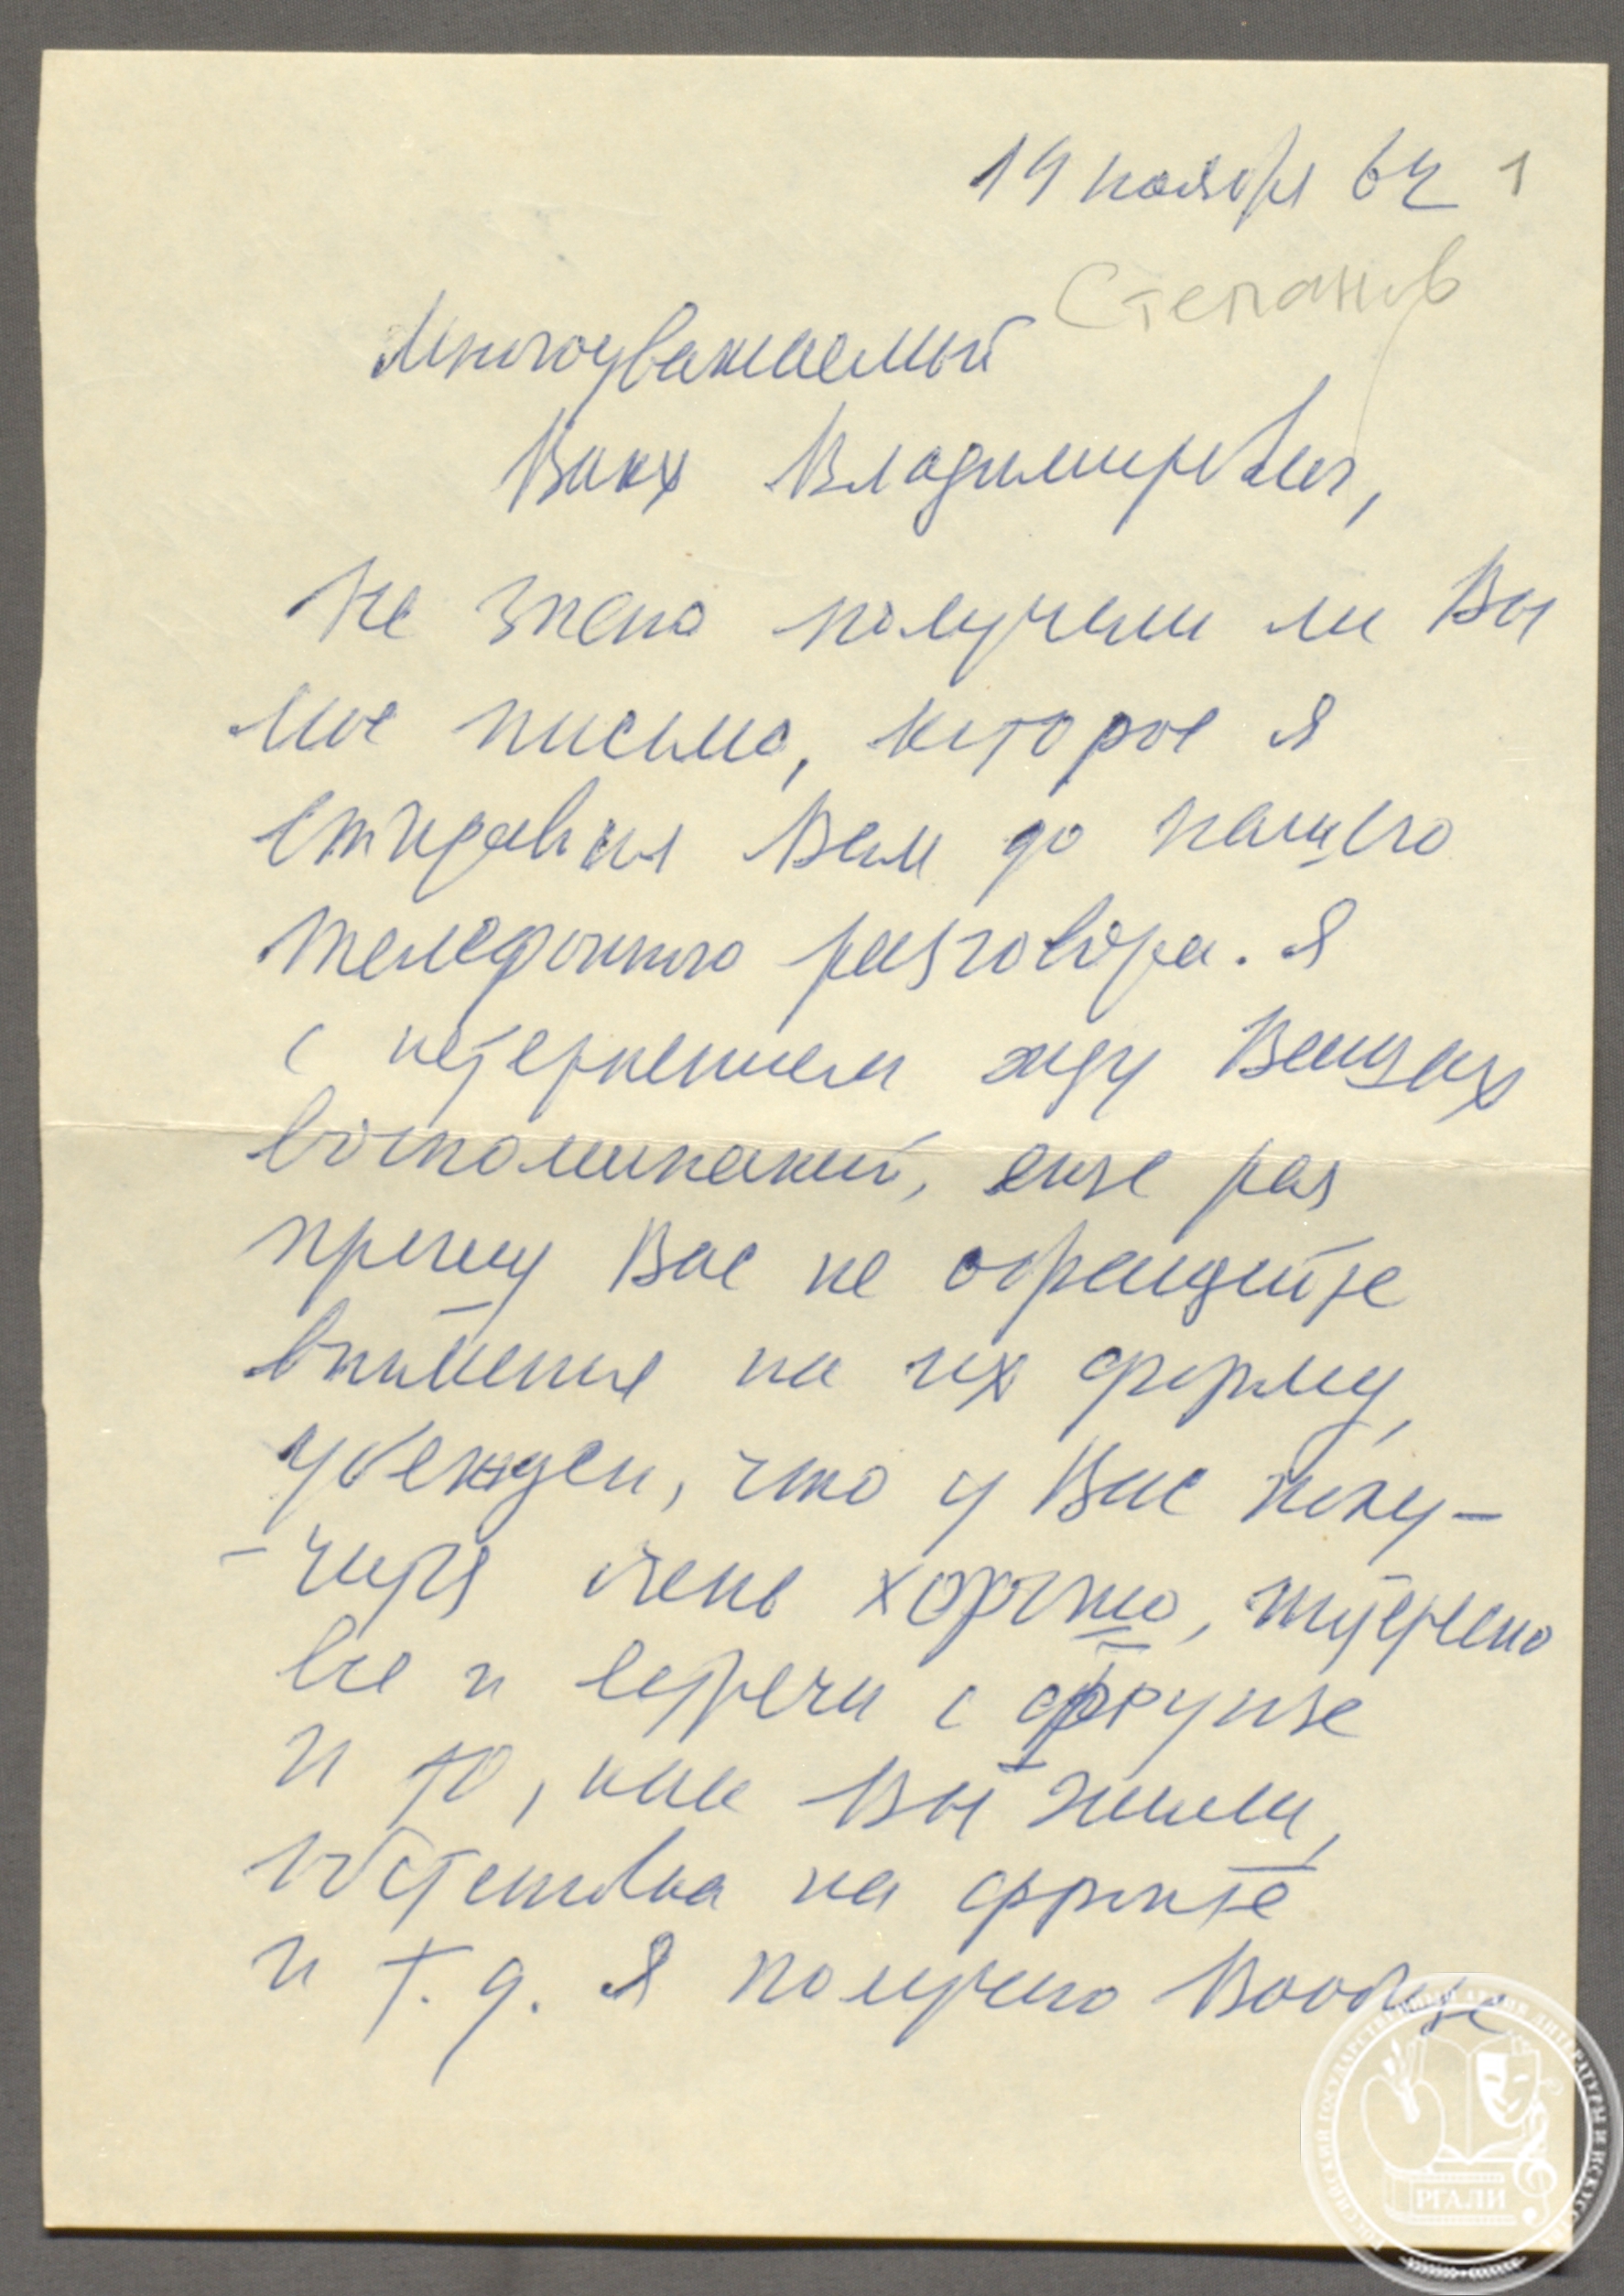 19 ноября 64 1
Степанов
Многоуважаемый
Вакх Владимирович,
Не знаю получили ли Вы
мое письмо, которое я
отправил Вам до нашего
телефонного разговора. Я
с нетерпением жду Ваших
воспоминаний, еще раз
прошу Вас не обращайте
внимение на их форму,
убежден, что у Вас полу-
-чится очень хорошо, интересно
все и встречи с Фрунзе
и то, как Вы жили,
обстановка на фронте
и т.д. Я получаю вообще
РОССИЙСКИЙ ГОСУДАРСТВЕННЫЙ АРХИВ ЛИТЕРАТУРЫ И ИСКУССТВА
РГАЛИ